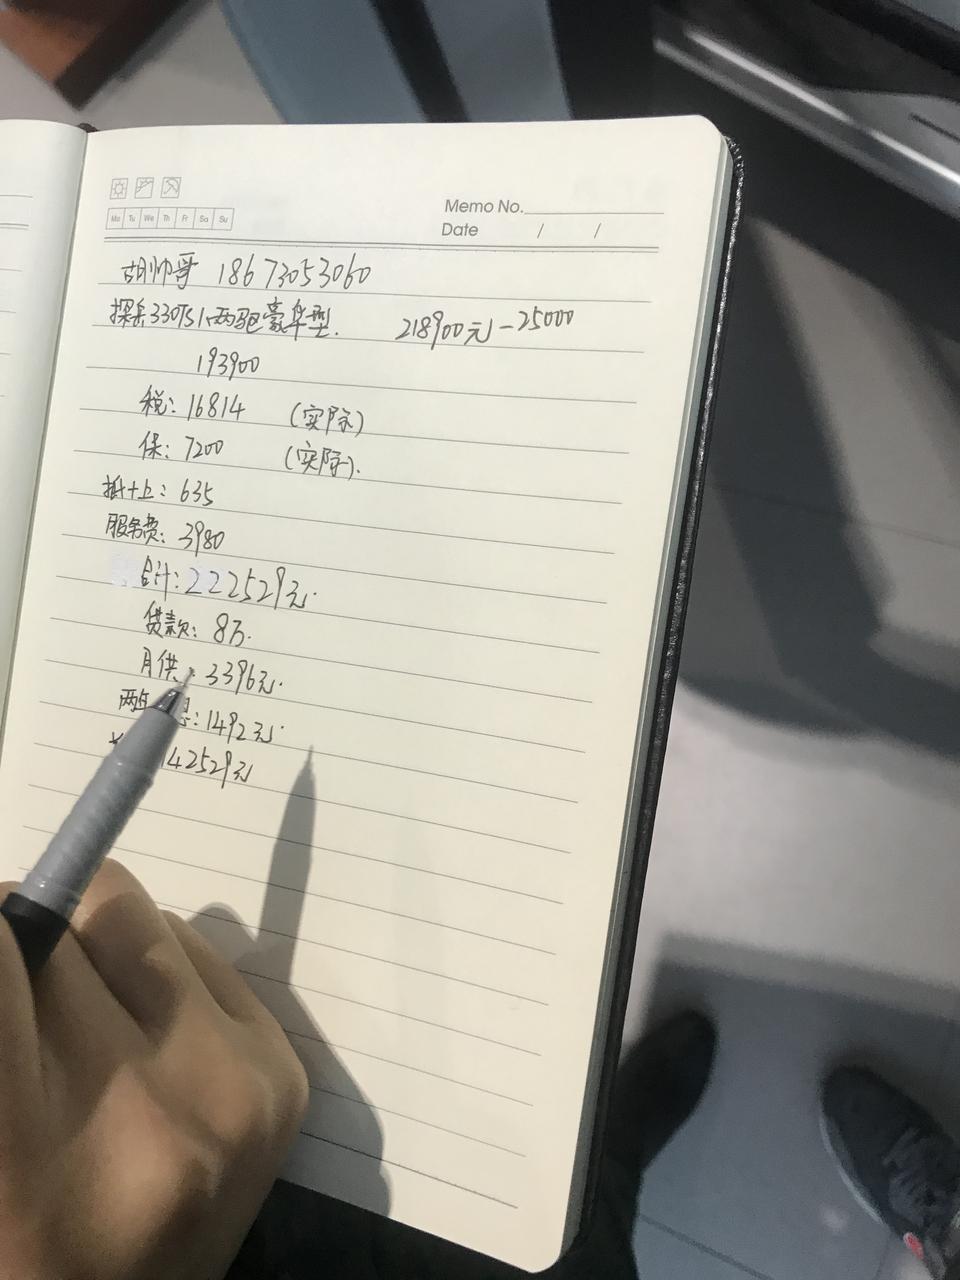 Mo Tu We Th Fr Sa Su
Memo No.
Date / /
胡帅哥 18673053060
探岳330TSI两驱豪华型. 218900元-25000
193900
税: 16814 (实际)
保: 7200 (实际).
抵+上: 635
服务费: 3980
合计: 222529元.
贷款: 8万.
月供: 3396元.
两 息: 1492元.
142529元